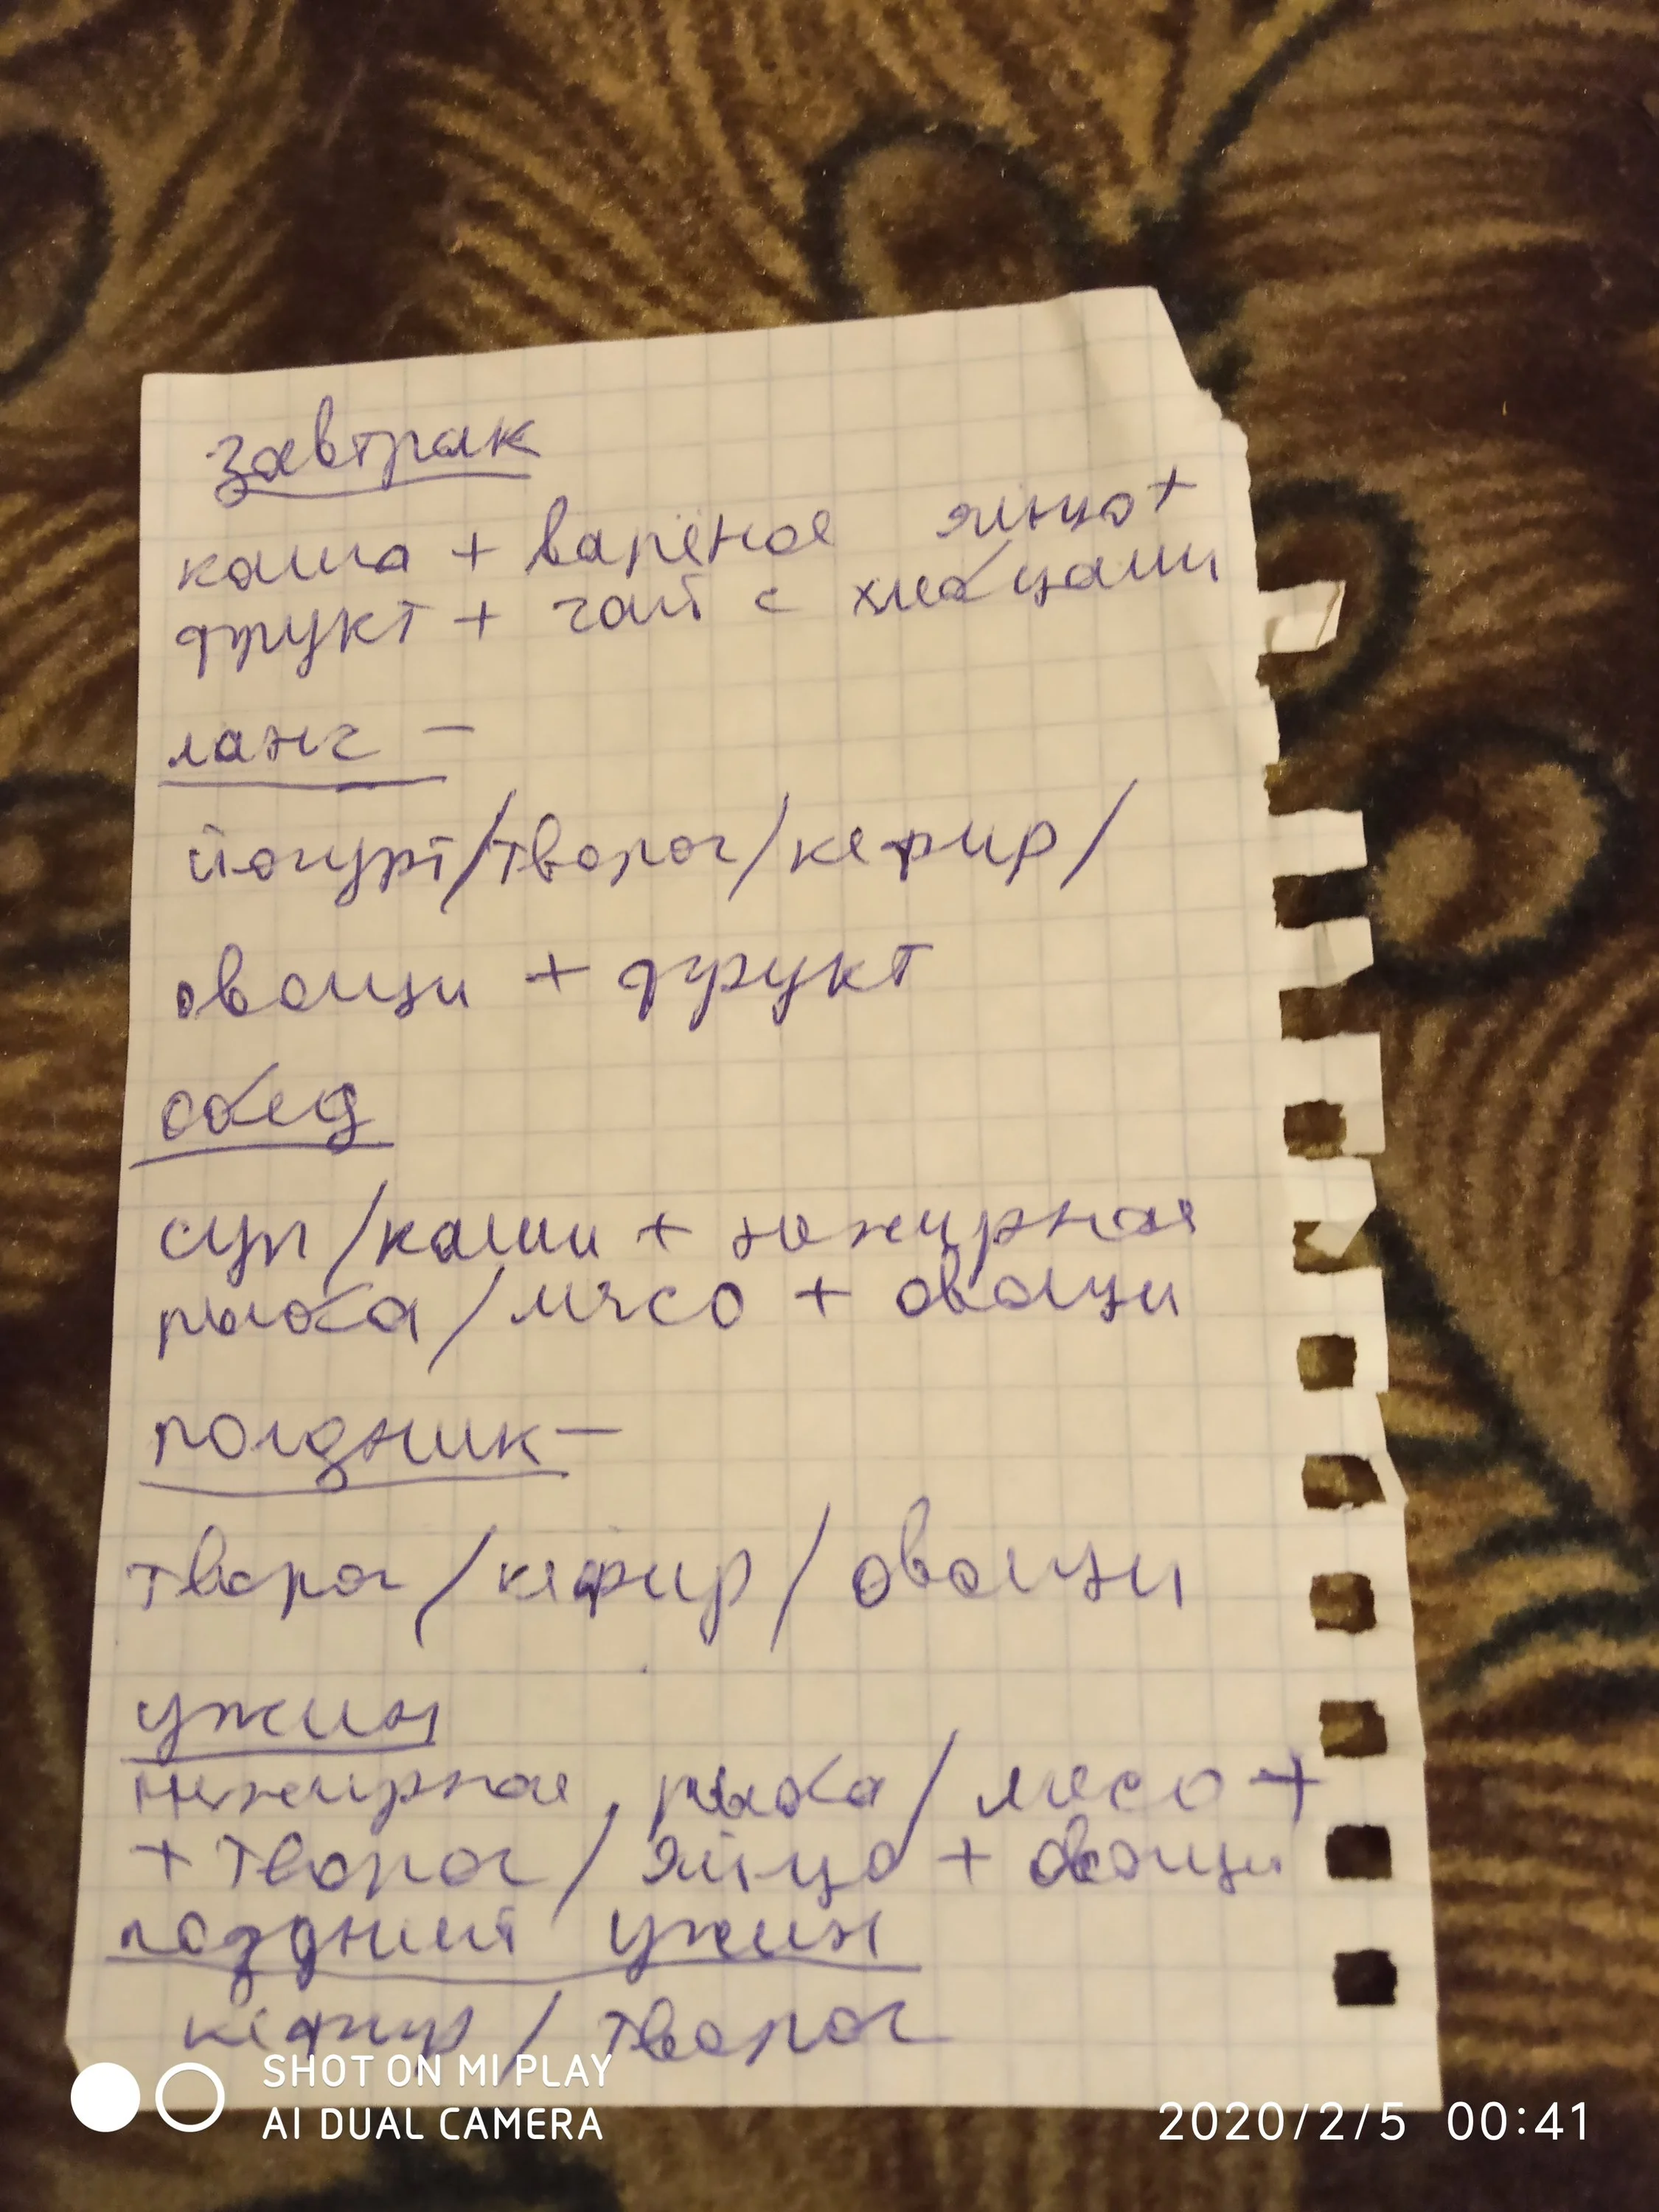 завтрак
каша + варёное яйцо +
фрукт + чай с хлебцами
ланч –
йогурт/творог/кефир/
овощи + фрукт
обед
суп/каши + нежирная
рыба/мясо + овощи
полдник –
творог/кефир/овощи
ужин
нежирная рыба/мясо +
+ творог/яйцо + овощи
поздний ужин
кефир/творог
SHOT ON MI PLAY
AI DUAL CAMERA
2020/2/5 00:41